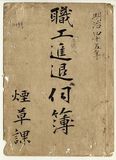 明治四十五年
職工進退伺簿
煙草課